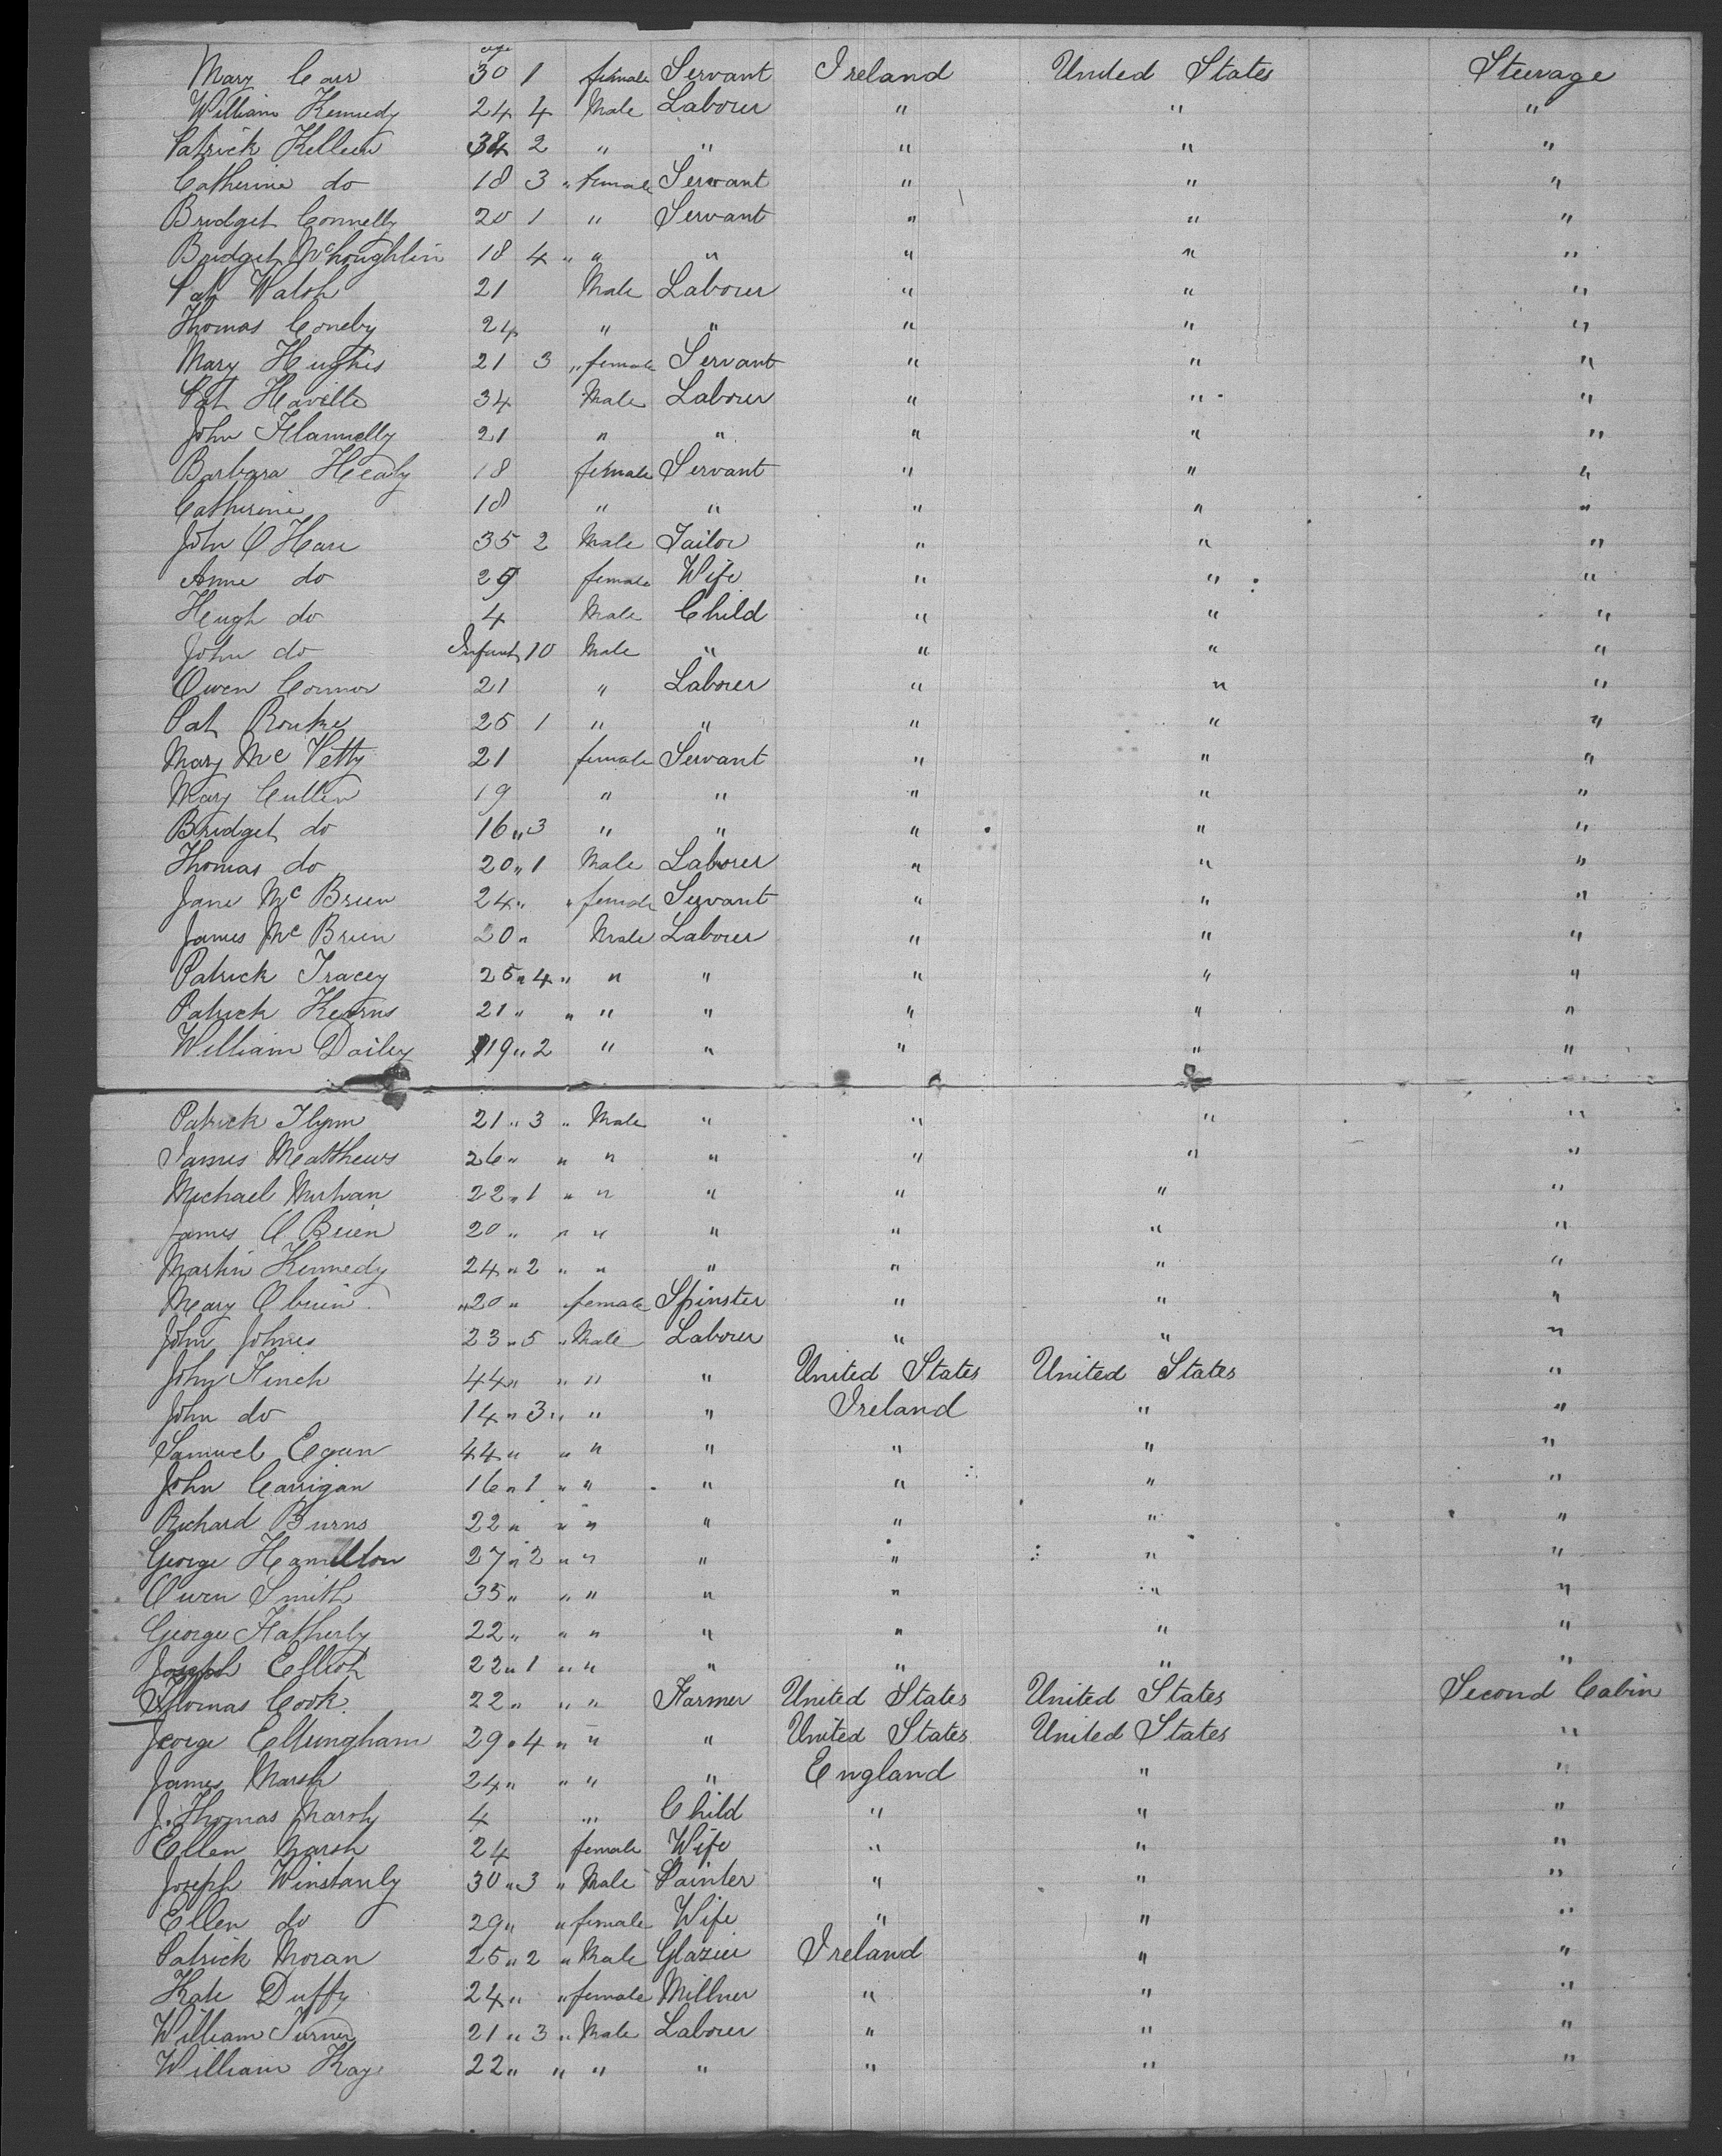 age
Mary Carr 30 1 female Servant Ireland United States Steerage
William Kennedy 24 4 Male Labourer " " "
Patrick Killeen 34 2 " " " " "
Catherine do 18 3 " female Servant " " "
Bridget Connelly 20 1 " Servant " " "
Bridget McLoughlin 18 4 " " " " " "
Pat Walsh 21 Male Labourer " " "
Thomas Coneby 24 " " " " "
Mary Hughes 21 3 " female Servant " " "
Pat Haville 34 Male Labourer " " "
John Flannelly 21 " " " " "
Barbara Healy 18 female Servant " " "
Catherine 18 " " " " "
John O Hare 35 2 Male Tailor " " "
Anne do 29 female Wife " " "
Hugh do 4 Male Child " " "
John do Infant 10 Male " " " "
Owen Connor 21 " Laborer " " "
Pat Rourke 25 1 " " " " "
Mary Mc Vetty 21 female Servant " " "
Mary Cullen 19 " " " " "
Bridget do 16 " 3 " " " " "
Thomas do 20 " 1 Male Laborer " " "
Jane Mc Brien 24 " " female Servant " " "
James Mc Brien 20 " Male Laborer " " "
Patrick Tracey 25 " 4 " " " " " "
Patrick Kearns 21 " " " " " " "
William Dailey 19 " 2 " " " " "
Patrick Flynn 21 " 3 " Male " " " "
James Matthews 26 " " " " " " "
Michael 22 " 1 " " " " " "
James O Brien 20 " " " " " " "
Martin Kennedy 24 " 2 " " " " " "
Mary Obrien " 20 " female Spinster " " "
John Johnes 23 " 5 " Male Laborer " " "
John Finch 44 " " " " United States United States "
John do 14 " 3 " " " Ireland " "
Samuel Egan 44 " " " " " " "
John Carrigan 16 " 1 " " " " " "
Richard Burns 22 " " " " " " "
George Hamilton 27 " 2 " " " " " "
Owen Smith 35 " " " " " " "
George Flatherly 22 " " " " " " "
Joseph Elliot 22 " 1 " " " " " "
Thomas Cook. 22 " " " Farmer United States United States Second Cabin
George Ellingham 29 " 4 " " " United States United States "
James Marsh 24 " " " " England " "
J. Thomas Marsh 4 " Child " " "
Ellen Marsh 24 female Wife " " "
Joseph Winstanly 30 " 3 " Male Painter " " "
Ellen do 29 " " female Wife " " "
Patrick Moran 25 " 2 " Male Glazier Ireland " "
Kate Duffy 24 " " female Millner " " "
William Turner 21 " 3 " Male Laborer " " "
William Kay 22 " " " " " " "